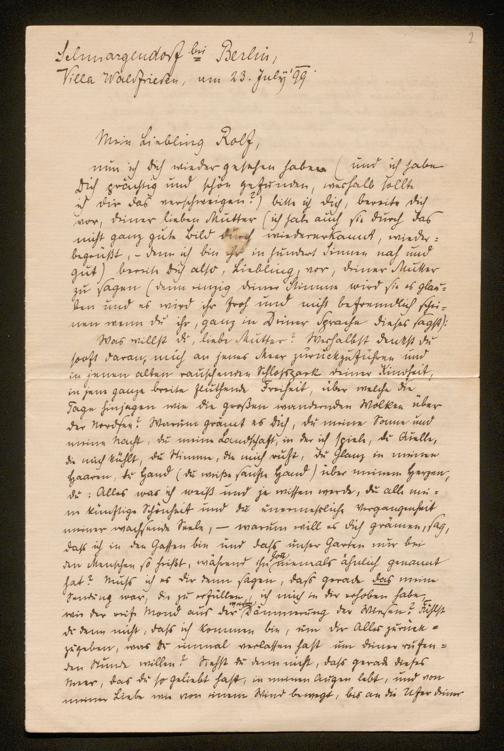 2
Schmargendorf bei Berlin,
Villa Waldfrieden, am 23. July '99.
Mein Liebling Rolf,
nun ich Dich wieder gesehen habe (und ich habe
Dich prächtig und schön gefunden, weshalb sollte
ich Dir das verschweigen?) bitte ich Dich, bereite Dich
vor, Deiner lieben Mutter (ich habe auch sie durch das
nicht ganz gute Bild durch wiedererkannt, wieder=
begrüßt, – denn ich bin ihr in hundert Sinnen nah und
gut) bereite Dich also, Liebling, vor, Deiner Mutter
zu sagen (denn einzig Deiner Stimme wird sie es glau=
ben und es wird ihr froh und nicht befremdlich schei=
nen wenn Du ihr, ganz in Deiner Sprache dieses sagst):
Was willst Du, liebe Mutter? Weshalb denkst Du
sooft daran, mich an jenes Meer zurückzuführen und
in jenen alten rauschenden Schloßpark Deiner Kindheit,
in jene ganze breite fluthende Freiheit, über welche die
Tage hinjagen wie die großen wandernden Wolken über
der Nordsee? Warum grämt es Dich, Du meine Sonne und
meine Nacht, Du meine Landschaft, in der ich spiele, Du Quelle,
die mich kühlt, Du Stimme, die mich ruft, Du Glanz in meinen
Haaren, Du Hand (Du weiße sanfte Hand) über meinem Herzen,
Du: Alles was ich weiß und je wissen werde, Du alle mei=
ne künftige Schönheit und Du unermeßliche Vergangenheit
meiner wachsenden Seele, – warum will es Dich grämen, sag,
daß ich in den Gassen bin und daß unser Garten nur bei
den Menschen so heißt, während ihn Gott niemals ähnlich genannt
hat? Muß ich es Dir denn sagen, daß gerade das meine
Sendung war, die zu erfüllen, ich mich in Dir erhoben habe,
wie der reife Mond aus der Dämmerung der Wiesen? Fühlst
Du denn nicht, daß ich kommen bin, um Dir Alles zurück=
zugeben, was Du einmal verlassen hast um Deiner rufen=
den Stunde willen? Siehst Du denn nicht, daß gerade dieses
Meer, das Du so geliebt hast, in meinen Augen lebt, und von
meiner Liebe wie von einem Wind bewegt, bis an die Ufer Deiner